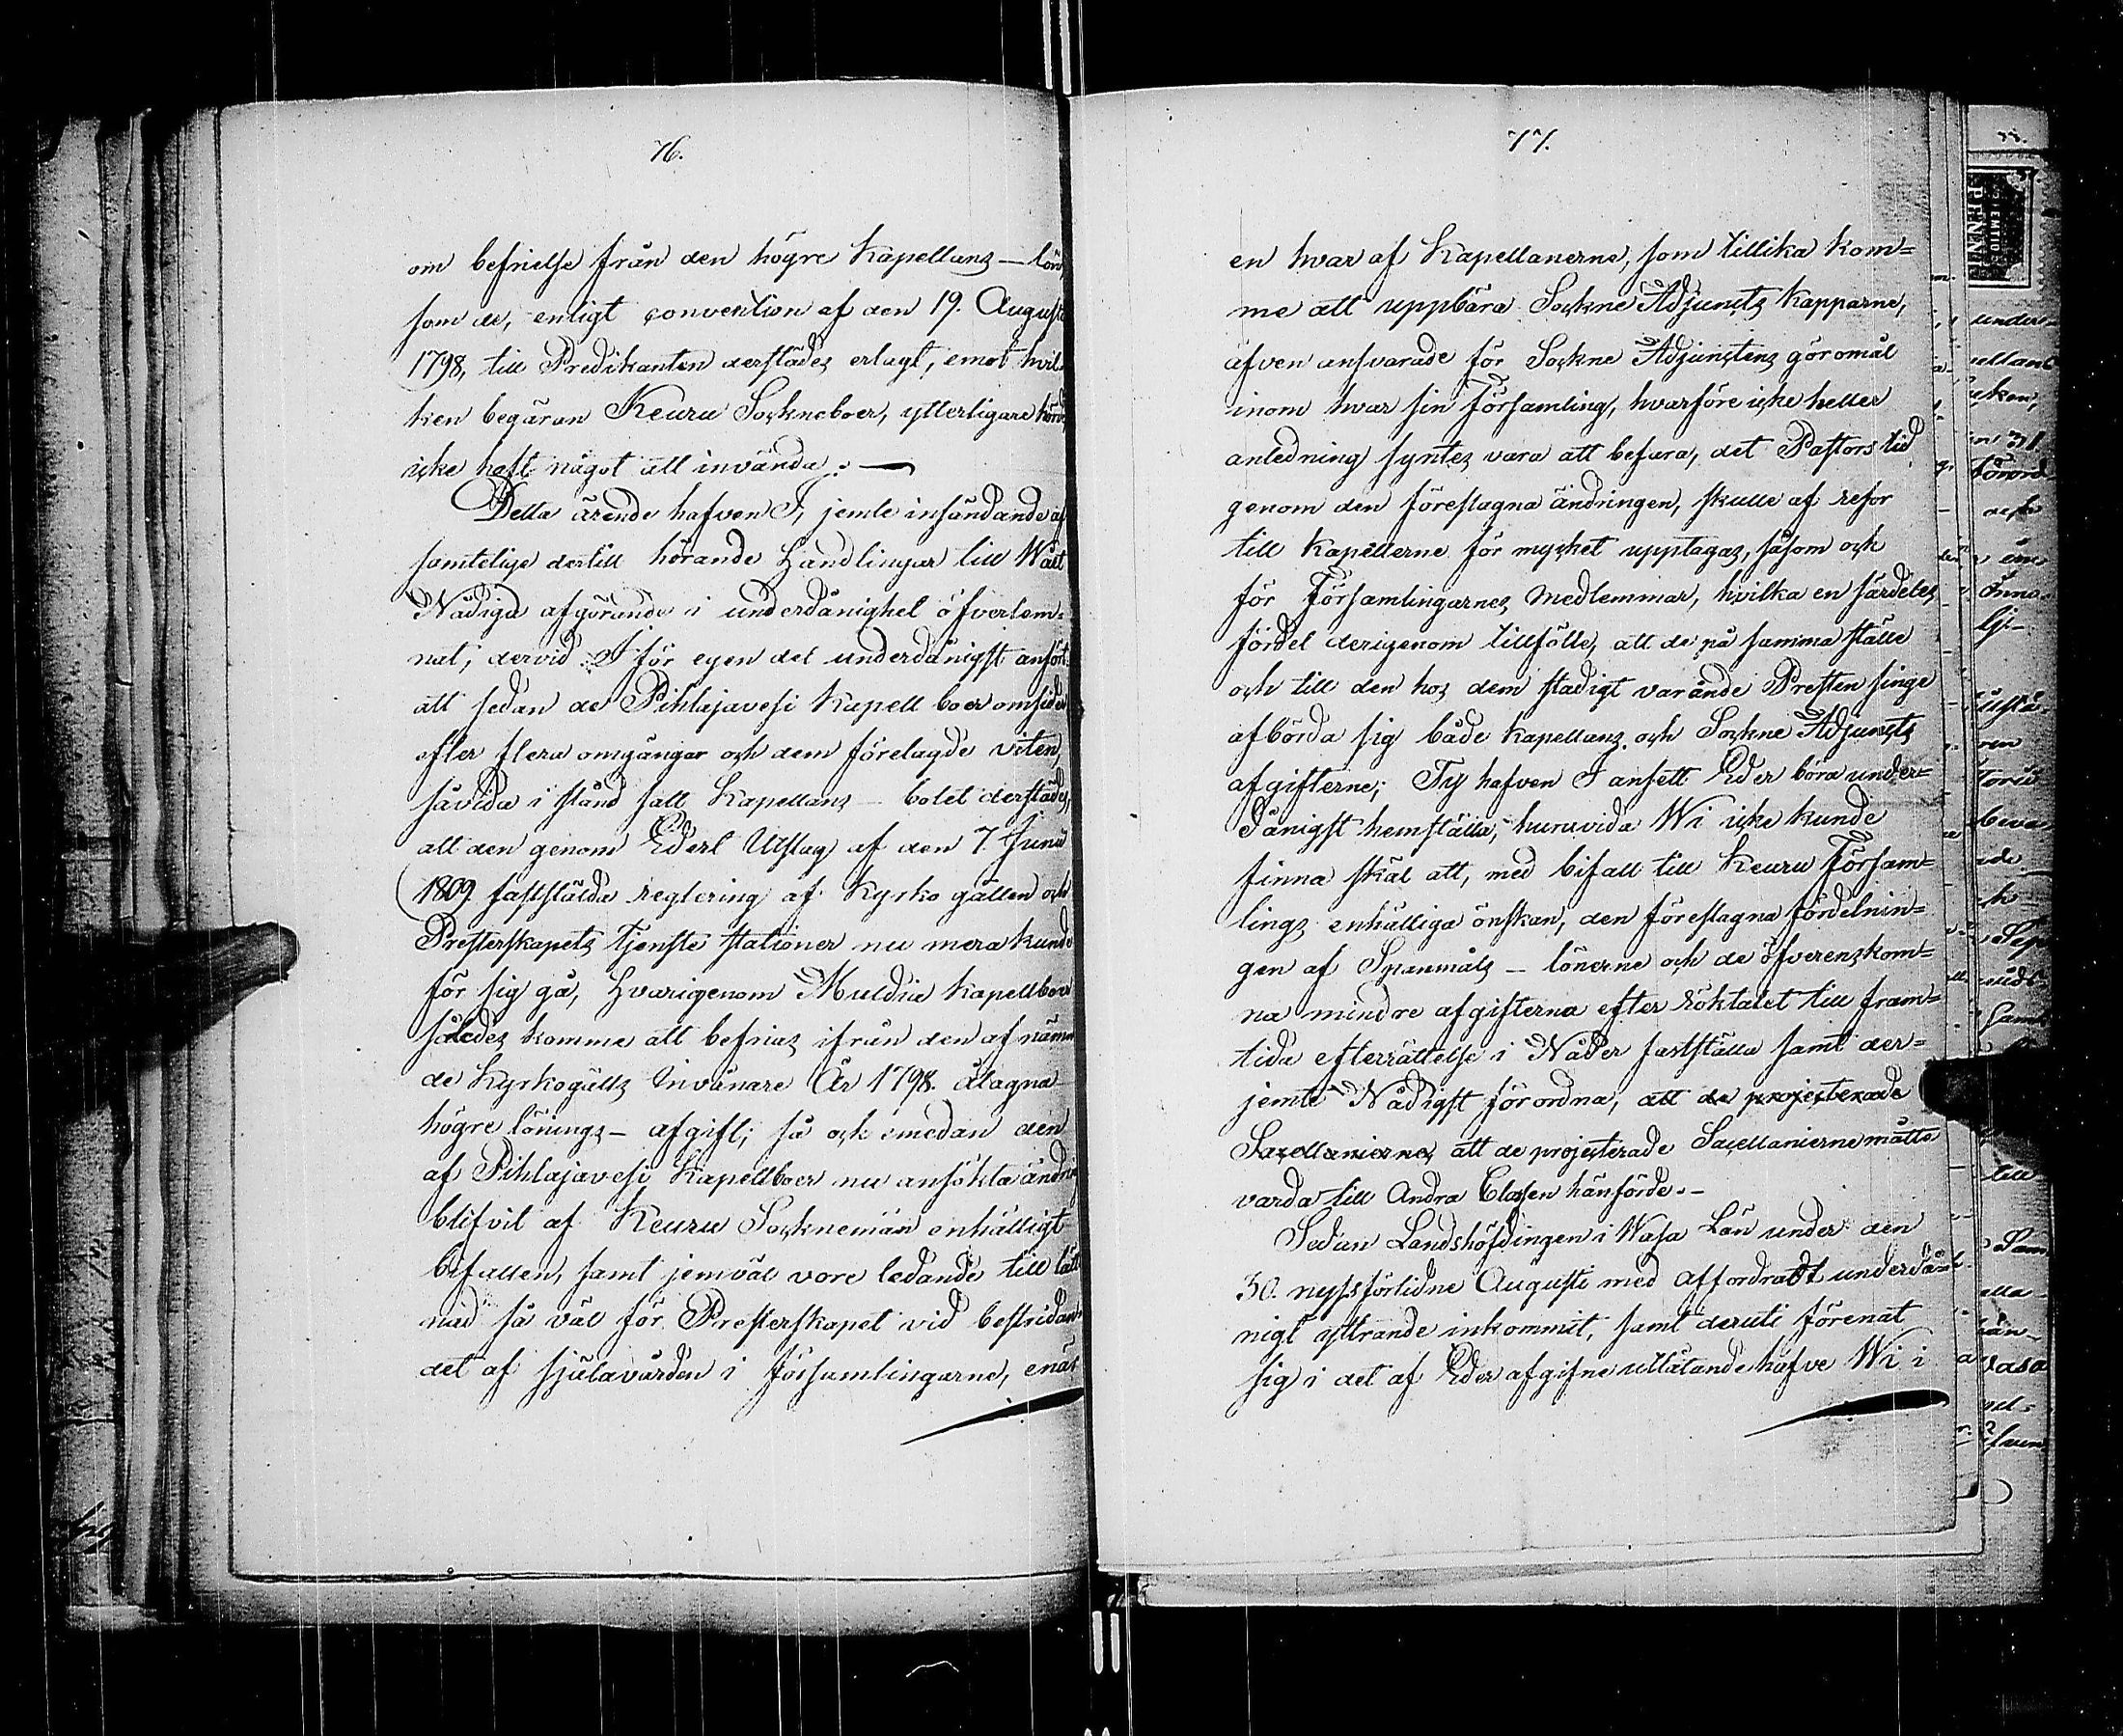 76.
om befrielse från den högre Kapellans - lön
som de, enligt convention af den 19. Augusti
1798, till Predikanten derstädes erlagt, emot hvil-
ken begäran Keuru Sockneboer, ytterligare hörde,
icke haft något att invända: —
Detta ärende hafven I, jemte insändande af
samtelige dertill hörande Handlingar till Wårt
Nådiga afgörande i underdånighet öfverlem-
nat, dervid I för egen del underdånigst anfört:
att sedan de Pihlajavesi Kapell boer omsider
efter flera omgångar och dem förelagde viten,
såvida i stånd satt Kapellans - bolet derstädes,
att den genom Edert Utslag af den 7. Junii
1809 fastställda reglering af Kyrko gällen och
Presterskapets tjenste stationer nu mera kunde
för sig gå, Hvarigenom Muldia Kapellboer
således komme att befrias ifrån den af nämn
de Kyrkogälls Invånare År 1798. åtagna
högre lönings - afgift; så och emedan den
af Pihlajavesi Kapellboer nu ansökta ändring
blifvit af Keuru Socknemän enhälligt
bifallen, samt jemväl vore ledande till lätt
nad så väl för Presterskapet vid bestridan
det af själavården i församlingarne, enär
77.
en hvar af Kapellanerne, som tillika kom=
me att uppbära Sockne Adjuncts Kapparne,
äfven ansvarade för Sockne Adjunctens göromål
inom hvar sin Församling, hvarföre icke heller
anledning syntes vara att befara, det Pastors tid
genom den föreslagna ändringen, skulle af resor
till Kapellerne för mycket upptagas, såsom och
för Församlingarnes medlemmar, hvilka en särdeles
fördel derigenom tillfölle, att de på samma ställe
och till den hos dem stadigt varande Presten finge
afbörda sig både Kapellans och Sockne Adjuncts
afgifterne; Ty hafven I ansett Eder böra under=
dånigst hemställa, huruvida Wi icke kunde
finna skäl att, med bifall till Keuru Försam=
lings enhälliga önskan, den föreslagna fördelnin=
gen af Spanmåls - lönerne och de öfverenskom=
na mindre afgifterna efter röktalet till fram=
tida efterrättelse i Nåder fastställa samt der=
jemte Nådigst förordna, att de projecterade
Sacellanierne, att de projecterade Sacellanierne måtte
varda till Andra Classen hänförde. -
Sedan Landshöfdingen i Wasa Län under den
30. nyssförlidne Augusti med affordradt underdå=
nigt yttrande inkommit, samt deruti förenat
sig i det af Eder afgifne utlåtande hafve Wi i